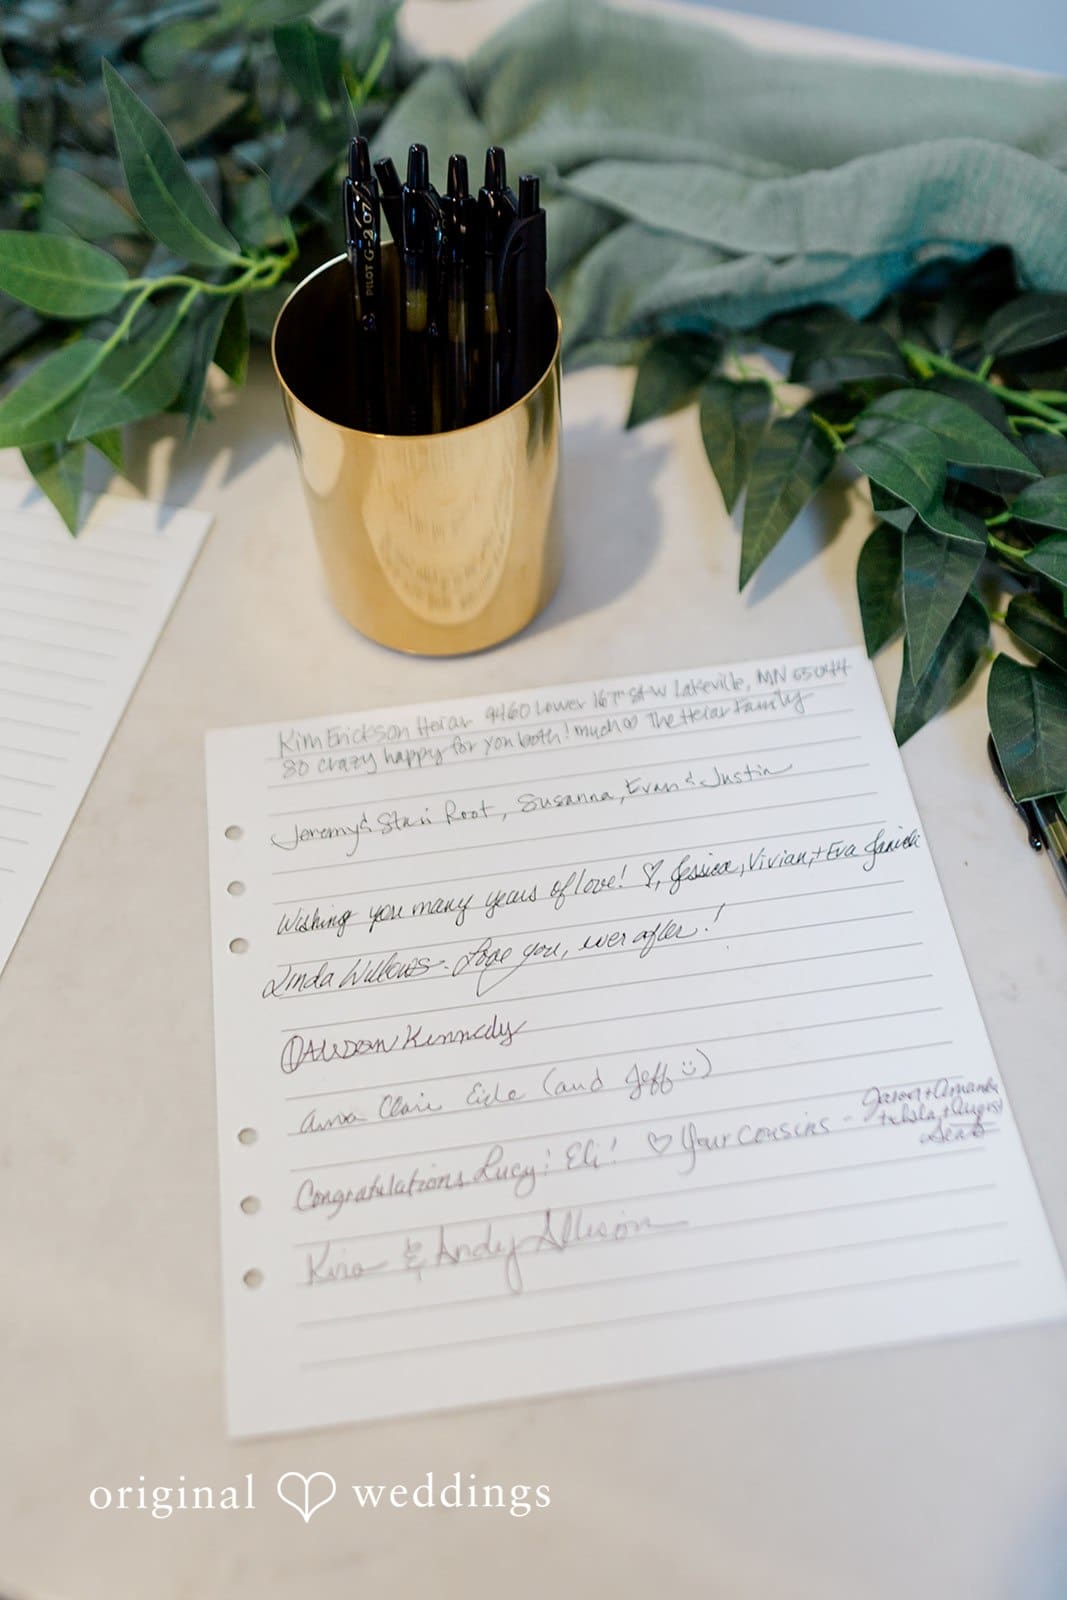 PILOT G-2 07
Kim Erickson Heiar 9460 Lower 167th St W Lakeville, MN 55044
So crazy happy for you both! much ♡ The Heiar Family
Jeremy & Staci Root, Susanna, Evan & Justin
Wishing you many years of love! ♡, Jessica, Vivian, + Eva
Linda Willows - Love you, ever after!
Kennedy
Anna Clair Eide (and Jeff ☺)
Congratulations Lucy! Eli! ♡ Your Cousins - Jason + Amanda
+ Isla, + August
Kira & Andy Allison
original ♡ weddings